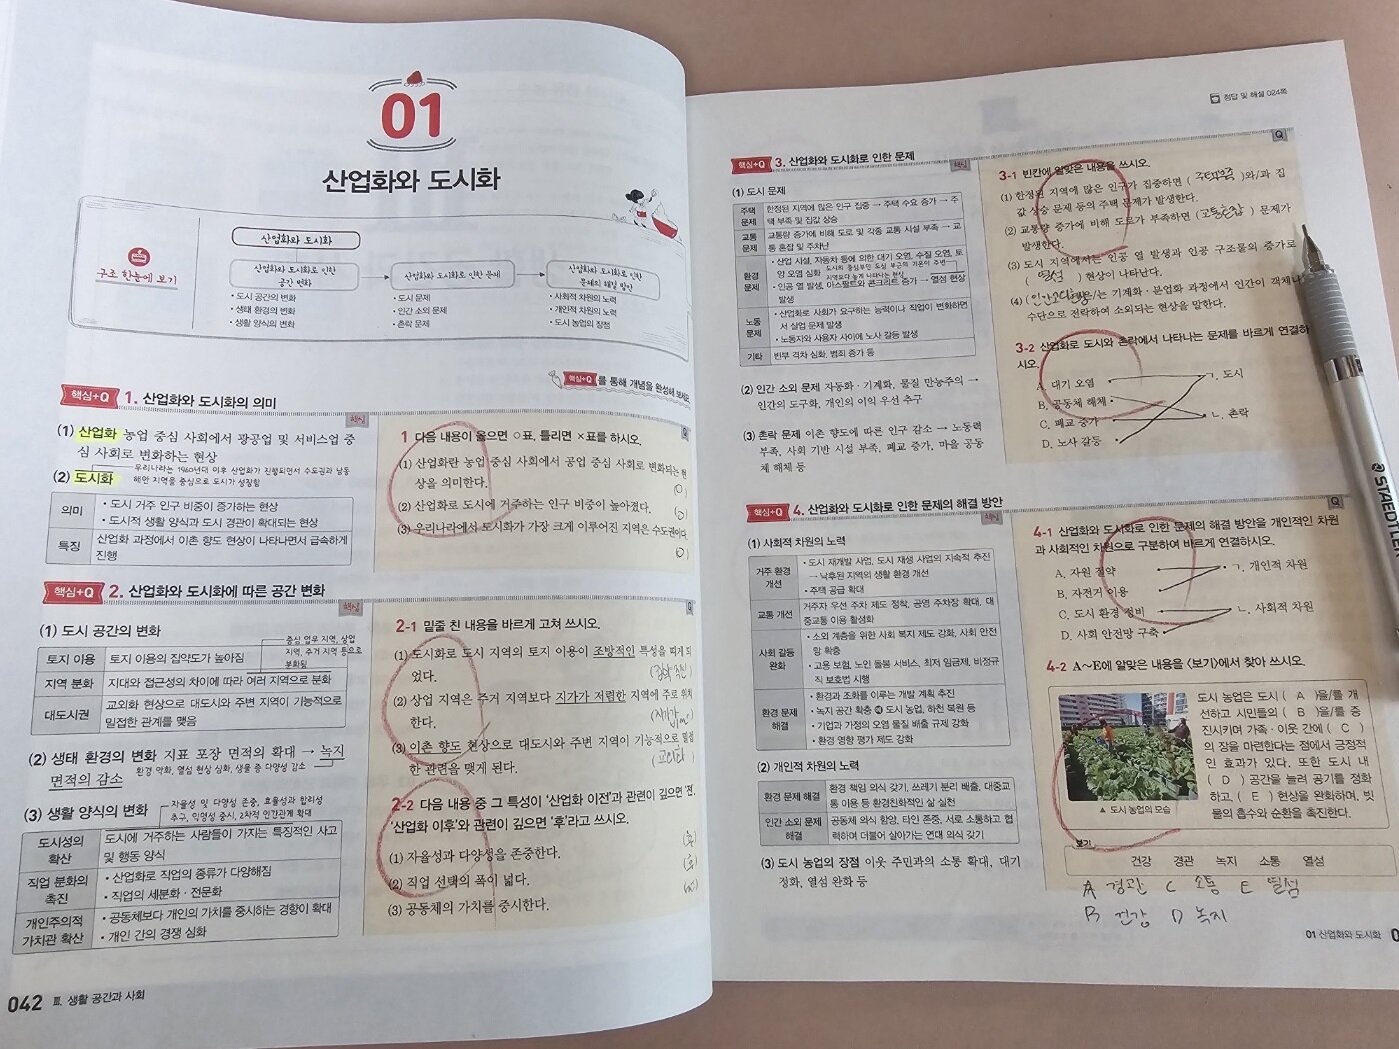 01
산업화와 도시화
구조 한눈에 보기
산업화와 도시화
산업화와 도시화로 인한
공간 변화
• 도시 공간의 변화
• 생태 환경의 변화
• 생활 양식의 변화
산업화와 도시화로 인한 문제
• 도시 문제
• 인간 소외 문제
• 촌락 문제
산업화와 도시화로 인한
문제의 해결 방안
• 사회적 차원의 노력
• 개인적 차원의 노력
• 도시 농업의 장점
핵심+Q 를 통해 개념을 완성해 보세요
핵심+Q 1. 산업화와 도시화의 의미
핵심
(1) 산업화 농업 중심 사회에서 광공업 및 서비스업 중
심 사회로 변화하는 현상
우리나라는 1960년대 이후 산업화가 진행되면서 수도권과 남동
해안 지역을 중심으로 도시가 성장함
(2) 도시화
의미
• 도시 거주 인구 비중이 증가하는 현상
• 도시적 생활 양식과 도시 경관이 확대되는 현상
특징
산업화 과정에서 이촌 향도 현상이 나타나면서 급속하게
진행
Q
1 다음 내용이 옳으면 ○표, 틀리면 ×표를 하시오.
(1) 산업화란 농업 중심 사회에서 공업 중심 사회로 변화되는 현
상을 의미한다.
(O)
(2) 산업화로 도시에 거주하는 인구 비중이 높아졌다.
(O)
(3) 우리나라에서 도시화가 가장 크게 이루어진 지역은 수도권이다.
(O)
핵심+Q 2. 산업화와 도시화에 따른 공간 변화
핵심
(1) 도시 공간의 변화
중심 업무 지역, 상업
지역, 주거 지역 등으로
분화됨
토지 이용 토지 이용의 집약도가 높아짐
지역 분화 지대와 접근성의 차이에 따라 여러 지역으로 분화
대도시권
교외화 현상으로 대도시와 주변 지역이 기능적으로
밀접한 관계를 맺음
(2) 생태 환경의 변화 지표 포장 면적의 확대 → 녹지
면적의 감소
환경 악화, 열섬 현상 심화, 생물 종 다양성 감소
(3) 생활 양식의 변화
자율성 및 다양성 존중, 효율성과 합리성
추구, 익명성 중시, 2차적 인간관계 확대
도시성의
확산
도시에 거주하는 사람들이 가지는 특징적인 사고
및 행동 양식
직업 분화의
촉진
• 산업화로 직업의 종류가 다양해짐
• 직업의 세분화·전문화
개인주의적
가치관 확산
• 공동체보다 개인의 가치를 중시하는 경향이 확대
• 개인 간의 경쟁 심화
Q
2-1 밑줄 친 내용을 바르게 고쳐 쓰시오.
(1) 도시화로 도시 지역의 토지 이용이 조방적인 특성을 띠게 되
었다.
(2) 상업 지역은 주거 지역보다 지가가 저렴한 지역에 주로 위치
한다.
(3) 이촌 향도 현상으로 대도시와 주변 지역이 기능적으로 밀접
한 관련을 맺게 된다.
2-2 다음 내용 중 그 특성이 '산업화 이전'과 관련이 깊으면 '전',
'산업화 이후'와 관련이 깊으면 '후'라고 쓰시오.
(1) 자율성과 다양성을 존중한다.
(후)
(2) 직업 선택의 폭이 넓다.
(후)
(3) 공동체의 가치를 중시한다.
042 Ⅲ. 생활 공간과 사회
정답 및 해설 024쪽
핵심+Q 3. 산업화와 도시화로 인한 문제
핵심
(1) 도시 문제
주택
문제
한정된 지역에 많은 인구 집중 → 주택 수요 증가 → 주
택 부족 및 집값 상승
교통
문제
교통량 증가에 비해 도로 및 각종 교통 시설 부족 → 교
통 혼잡 및 주차난
환경
문제
• 산업 시설, 자동차 등에 의한 대기 오염, 수질 오염, 토
양 오염 심화
도시의 중심부인 도심 부근의 기온이 주변
지역보다 높게 나타나는 현상
• 인공 열 발생, 아스팔트와 콘크리트 증가 → 열섬 현상
발생
노동
문제
• 산업화로 사회가 요구하는 능력이나 직업이 변화하면
서 실업 문제 발생
• 노동자와 사용자 사이에 노사 갈등 발생
기타 빈부 격차 심화, 범죄 증가 등
(2) 인간 소외 문제 자동화·기계화, 물질 만능주의 →
인간의 도구화, 개인의 이익 우선 추구
(3) 촌락 문제 이촌 향도에 따른 인구 감소 → 노동력
부족, 사회 기반 시설 부족, 폐교 증가, 마을 공동
체 해체 등
Q
3-1 빈칸에 알맞은 내용을 쓰시오.
(1) 한정된 지역에 많은 인구가 집중하면 (주택부족)와/과 집
값 상승 문제 등의 주택 문제가 발생한다.
(2) 교통량 증가에 비해 도로가 부족하면 (교통혼잡) 문제가
발생한다.
(3) 도시 지역에서는 인공 열 발생과 인공 구조물의 증가로
(열섬) 현상이 나타난다.
(4) (인간소외현상)은/는 기계화·분업화 과정에서 인간이 객체나
수단으로 전락하여 소외되는 현상을 말한다.
3-2 산업화로 도시와 촌락에서 나타나는 문제를 바르게 연결하
시오.
A. 대기 오염
B. 공동체 해체
C. 폐교 증가
D. 노사 갈등
ㄱ. 도시
ㄴ. 촌락
핵심+Q 4. 산업화와 도시화로 인한 문제의 해결 방안
핵심
(1) 사회적 차원의 노력
거주 환경
개선
• 도시 재개발 사업, 도시 재생 사업의 지속적 추진
→ 낙후된 지역의 생활 환경 개선
• 주택 공급 확대
교통 개선
거주자 우선 주차 제도 정착, 공영 주차장 확대, 대
중교통 이용 활성화
사회 갈등
완화
• 소외 계층을 위한 사회 복지 제도 강화, 사회 안전
망 확충
• 고용 보험, 노인 돌봄 서비스, 최저 임금제, 비정규
직 보호법 시행
환경 문제
해결
• 환경과 조화를 이루는 개발 계획 추진
• 녹지 공간 확충 예 도시 농업, 하천 복원 등
• 기업과 가정의 오염 물질 배출 규제 강화
• 환경 영향 평가 제도 강화
(2) 개인적 차원의 노력
환경 문제 해결
환경 책임 의식 갖기, 쓰레기 분리 배출, 대중교
통 이용 등 환경친화적인 삶 실천
인간 소외 문제
해결
공동체 의식 함양, 타인 존중, 서로 소통하고 협
력하며 더불어 살아가는 연대 의식 갖기
(3) 도시 농업의 장점 이웃 주민과의 소통 확대, 대기
정화, 열섬 완화 등
Q
4-1 산업화와 도시화로 인한 문제의 해결 방안을 개인적인 차원
과 사회적인 차원으로 구분하여 바르게 연결하시오.
A. 자원 절약
B. 자전거 이용
C. 도시 환경 정비
D. 사회 안전망 구축
ㄱ. 개인적 차원
ㄴ. 사회적 차원
4-2 A~E에 알맞은 내용을 〈보기〉에서 찾아 쓰시오.
▲ 도시 농업의 모습
도시 농업은 도시 ( A )을/를 개
선하고 시민들의 ( B )을/를 증
진시키며 가족·이웃 간에 ( C )
의 장을 마련한다는 점에서 긍정적
인 효과가 있다. 또한 도시 내
( D ) 공간을 늘려 공기를 정화
하고, ( E ) 현상을 완화하며, 빗
물의 흡수와 순환을 촉진한다.
보기
건강 경관 녹지 소통 열섬
A 경관 C 소통 E 열섬
B 건강 D 녹지
01 산업화와 도시화
STAEDTLER